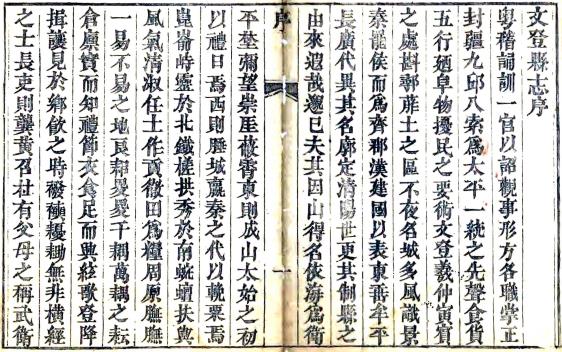 文登縣志序
粵稽訓一官以詔觀事形方各職掌正
封疆九邱八索爲太平一統之先聲食貨
五行廼阜物擾民之要術文登羲仲寅賓
之處斟鄩土之區不夜名城多風識景
秦罷侯而爲齊郡漢建國以表東垂牟平
長廣代異其名廓定清陽世更其制縣之
由來遐哉邈已夫其因山得名依海爲衛
序
一
平楚彌望崇厓蔽霄東則成山太始之初
以禮日焉西則腄城嬴秦之代以輓粟焉
崑崙峙靈於北鐵槎拱秀於南蜿蟺扶輿
風氣清淑任土作貢徵田爲糧周原膴膴
一易不易之地良耜畟畟千耦萬耦之耘
倉廩實而知禮節衣食足而興絃歌登降
揖讓見於鄉飲之時襏襫耰鋤無非橫經
之士長吏則龔黃召杜有父母之稱武衛